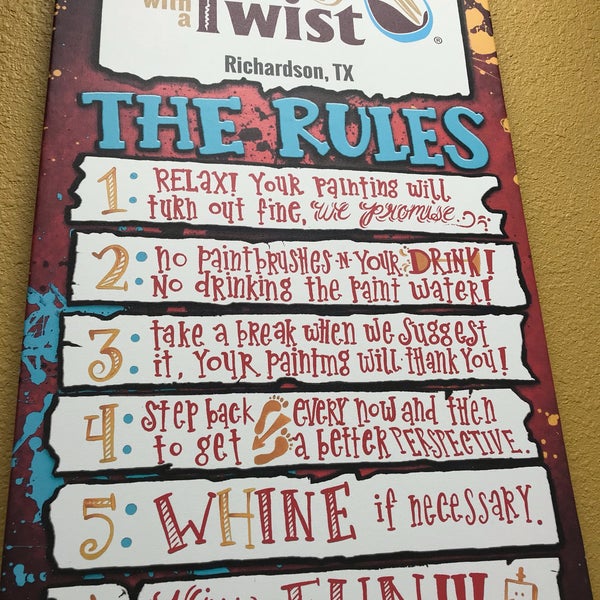 with
a Twist
®
Richardson, TX
THE RULES
1: RELAX! Your painting will
turn out fine, we promise.
2: no paintbrushes -N- YOUR DRINK!
No drinking the paint water!
3: take a break when we suggest
it, YOUR painting will thank YOU!
4: Step back every now and then
to get a better PERSPECTIVE.
5: WHINE if necessary.
FUN!!!